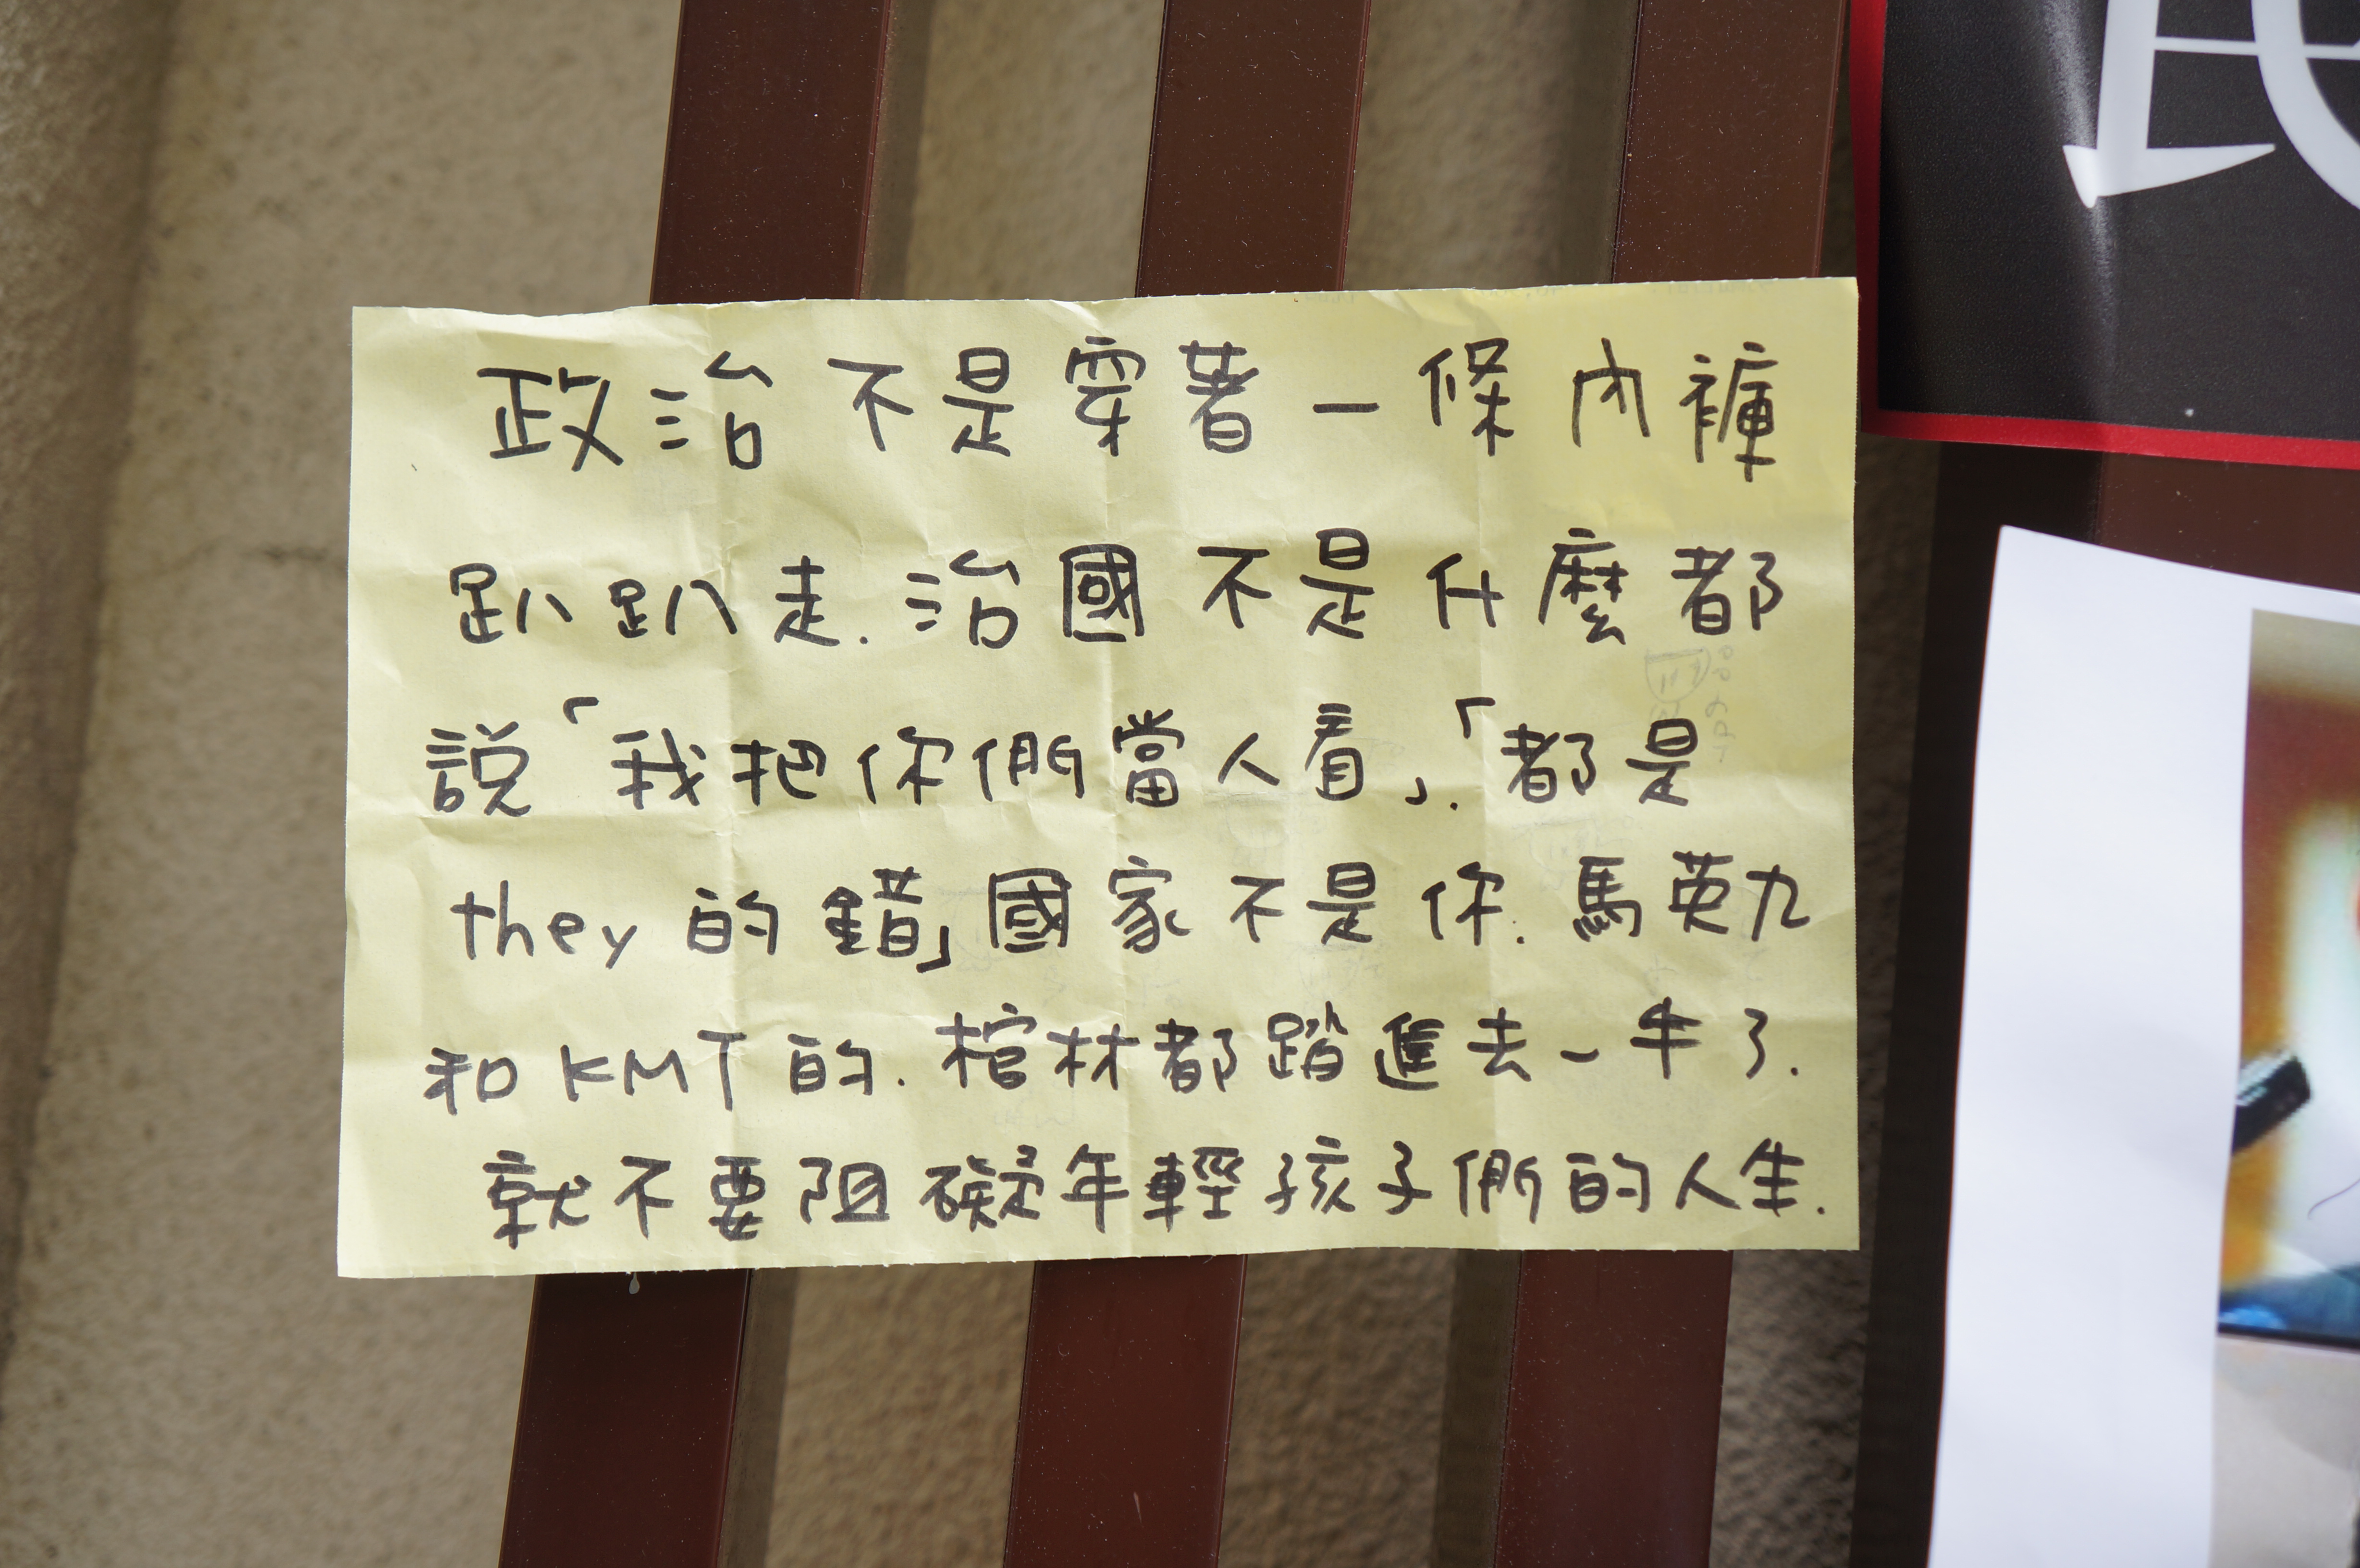 政治不是穿著一條內褲
趴趴走.治國不是什麼都
說「我把你們當人看」.「都是
they的錯」國家不是你.馬英九
和KMT的.棺材都踏進去一半了.
就不要阻礙年輕孩子們的人生.